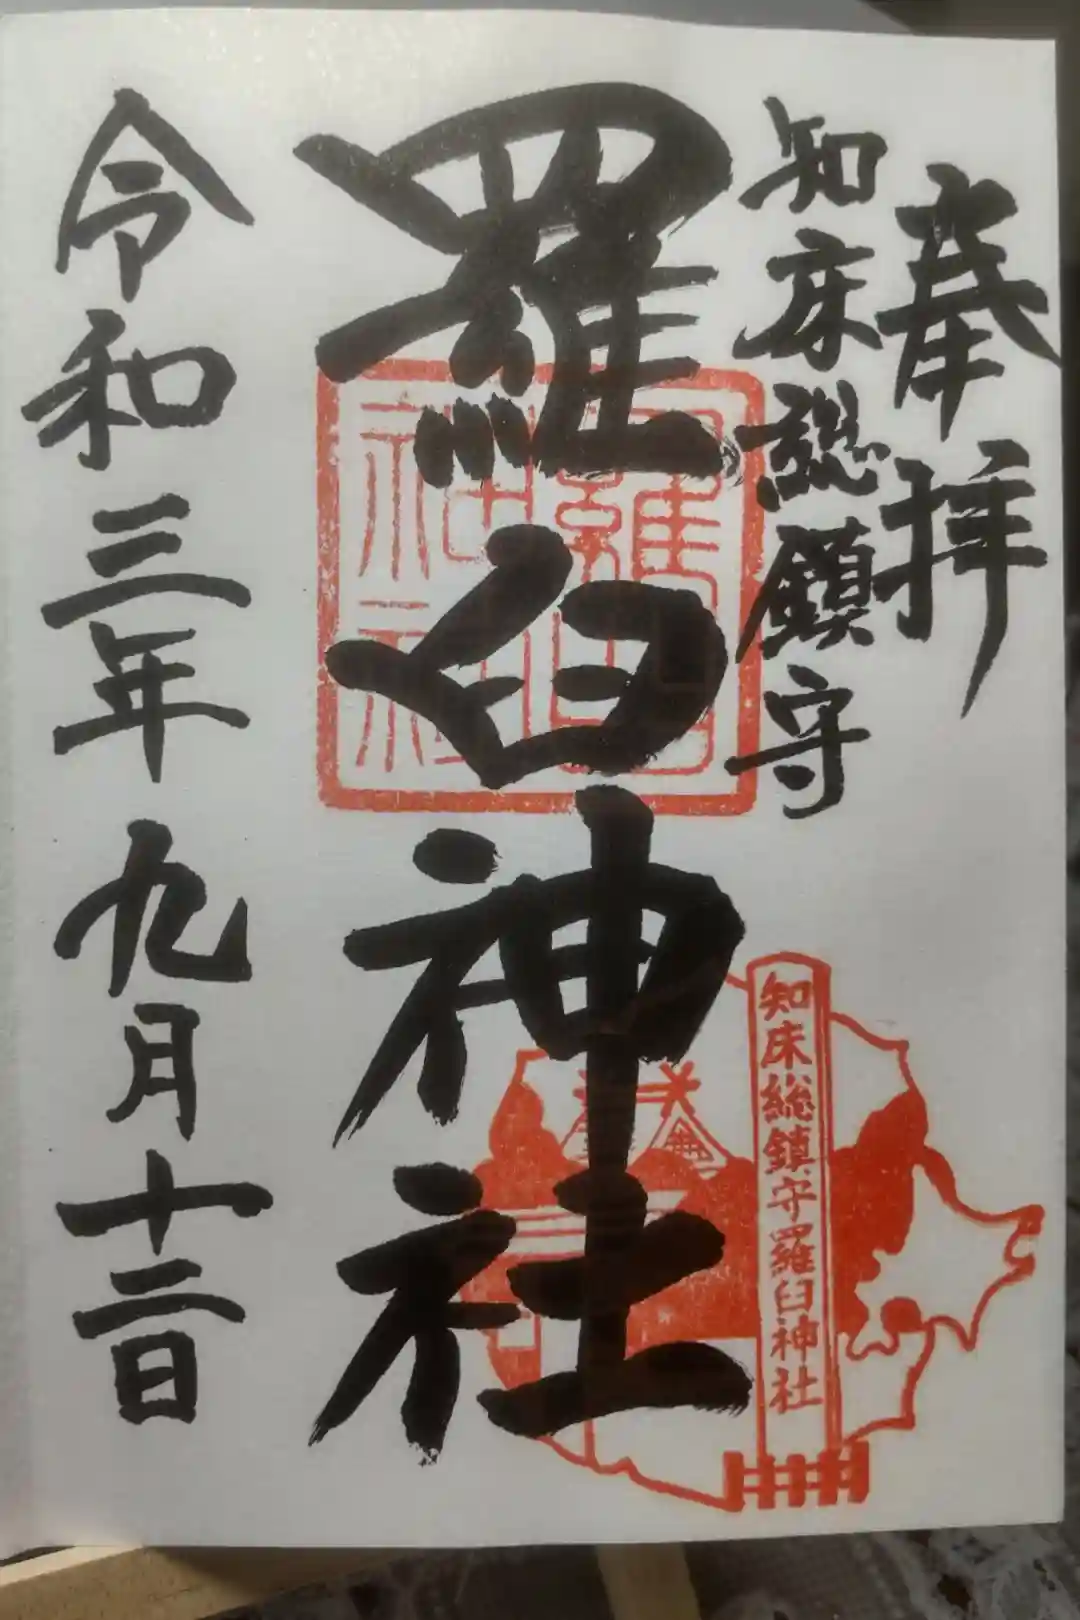 奉拝
知床総鎮守
羅臼神社
羅臼神社
知床総鎮守羅臼神社
令和三年九月十二日